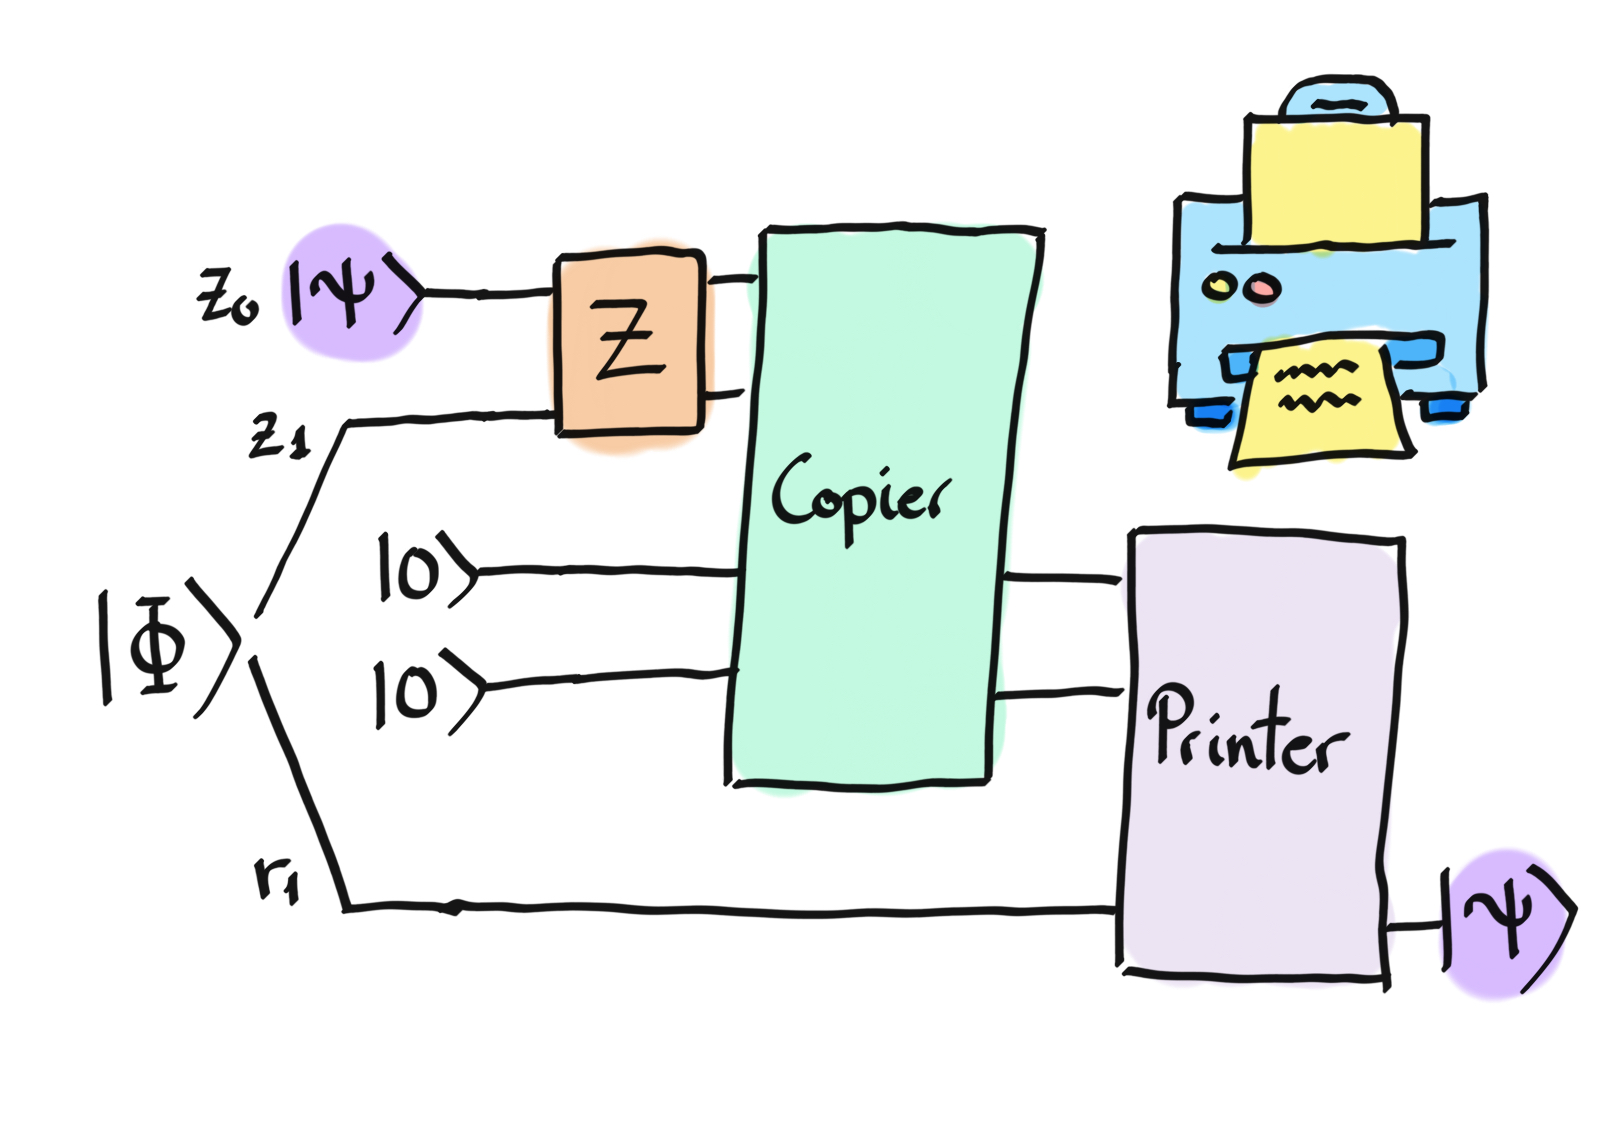 z₀ |Ψ⟩
Z
z₁
Copier
|0⟩
|Φ⟩
|0⟩
Printer
r₁
|Ψ⟩